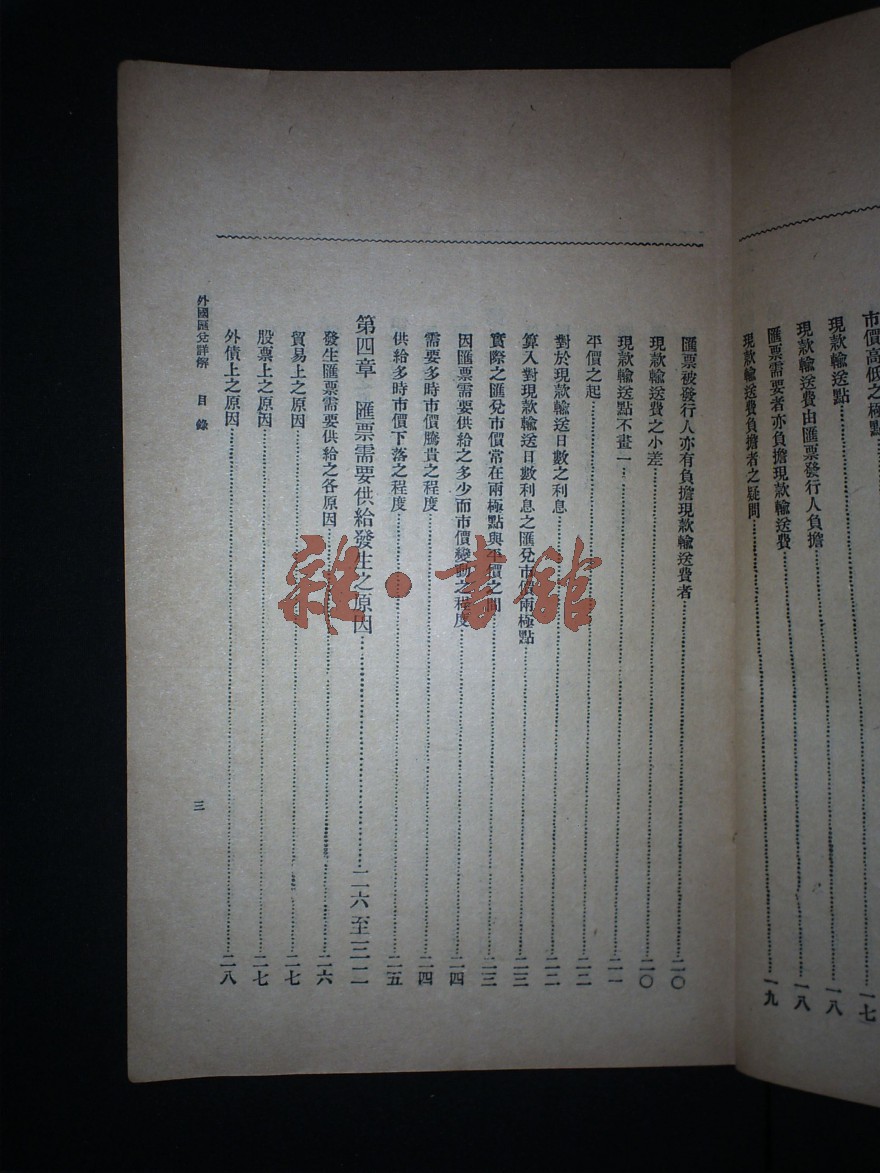 市價高低之極點……一七
現款輸送點……一八
現款輸送費由匯票發行人負擔……一八
匯票需要者亦負擔現款輸送費……一九
現款輸送費負擔者之疑問
匯票被發行人亦有負擔現款輸送費者……二〇
現款輸送費之小差……二〇
現款輸送點不畫一……二一
平價之起……二二
對於現款輸送日數之利息……二二
算入對現款輸送日數利息之匯兌市價兩極點……二三
實際之匯兌市價常在兩極點與平價之間……二三
因匯票需要供給之多少而市價變動之程度……二四
需要多時市價騰貴之程度……二四
供給多時市價下落之程度……二五
第四章 匯票需要供給發生之原因……二六至三二
發生匯票需要供給之各原因……二六
貿易上之原因……二七
股票上之原因……二七
外債上之原因……二八
外國匯兌詳解 目錄 三
雜·書館